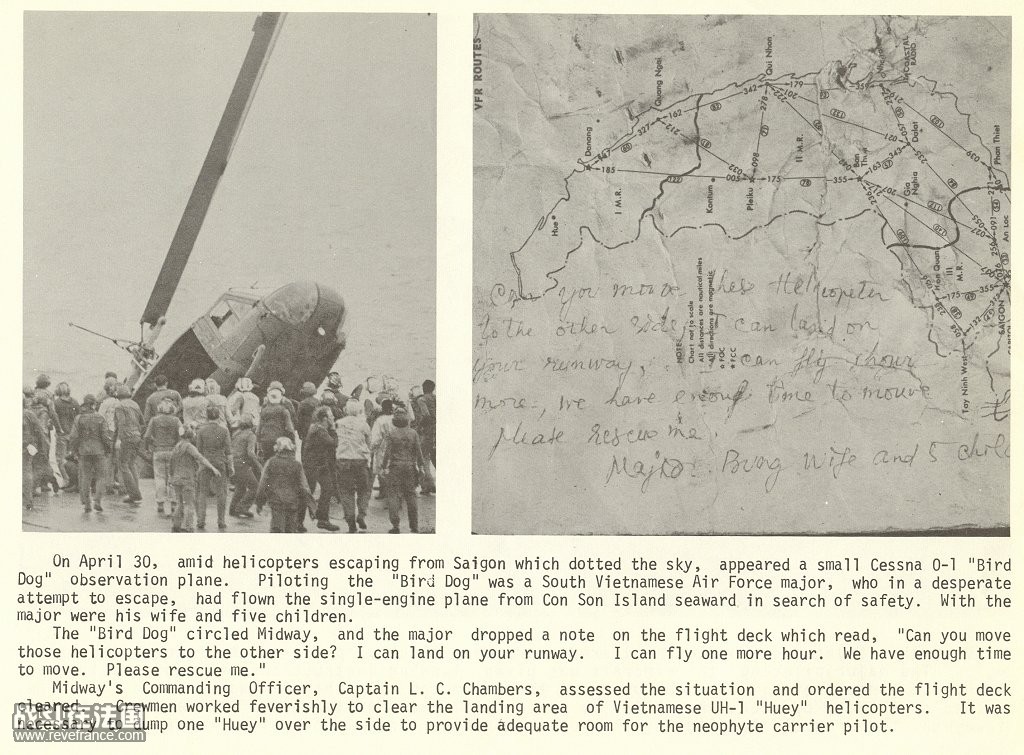 VFR ROUTES
Quang Ngai
Qui Nhon
COASTAL
RADIO
Danang
Dalat
Phan Thiet
Hue
I M.R.
Kontum
Pleiku
II M.R.
Ban
Gia
Nghia
III
M.R.
An Loc
SAIGON
Tay Ninh West
342
179
162
327
212
278
185
032
005
098
175
355
163
343
175
355
NOTE:
Chart not to scale
All distances are nautical miles
All directions are magnetic
FOC
FCC
Can you mouve thes Helicopeter
to the other side, I can land on
your runway, I can fly 1 hour
more, we have enough time to mouve
Please rescue me.
Bung wife and 5 child
On April 30, amid helicopters escaping from Saigon which dotted the sky, appeared a small Cessna O-1 "Bird
Dog" observation plane. Piloting the "Bird Dog" was a South Vietnamese Air Force major, who in a desperate
attempt to escape, had flown the single-engine plane from Con Son Island seaward in search of safety. With the
major were his wife and five children.
The "Bird Dog" circled Midway, and the major dropped a note on the flight deck which read, "Can you move
those helicopters to the other side? I can land on your runway. I can fly one more hour. We have enough time
to move. Please rescue me."
Midway's Commanding Officer, Captain L. C. Chambers, assessed the situation and ordered the flight deck
cleared. Crewmen worked feverishly to clear the landing area of Vietnamese UH-1 "Huey" helicopters. It was
necessary to dump one "Huey" over the side to provide adequate room for the neophyte carrier pilot.
www.revefrance.com